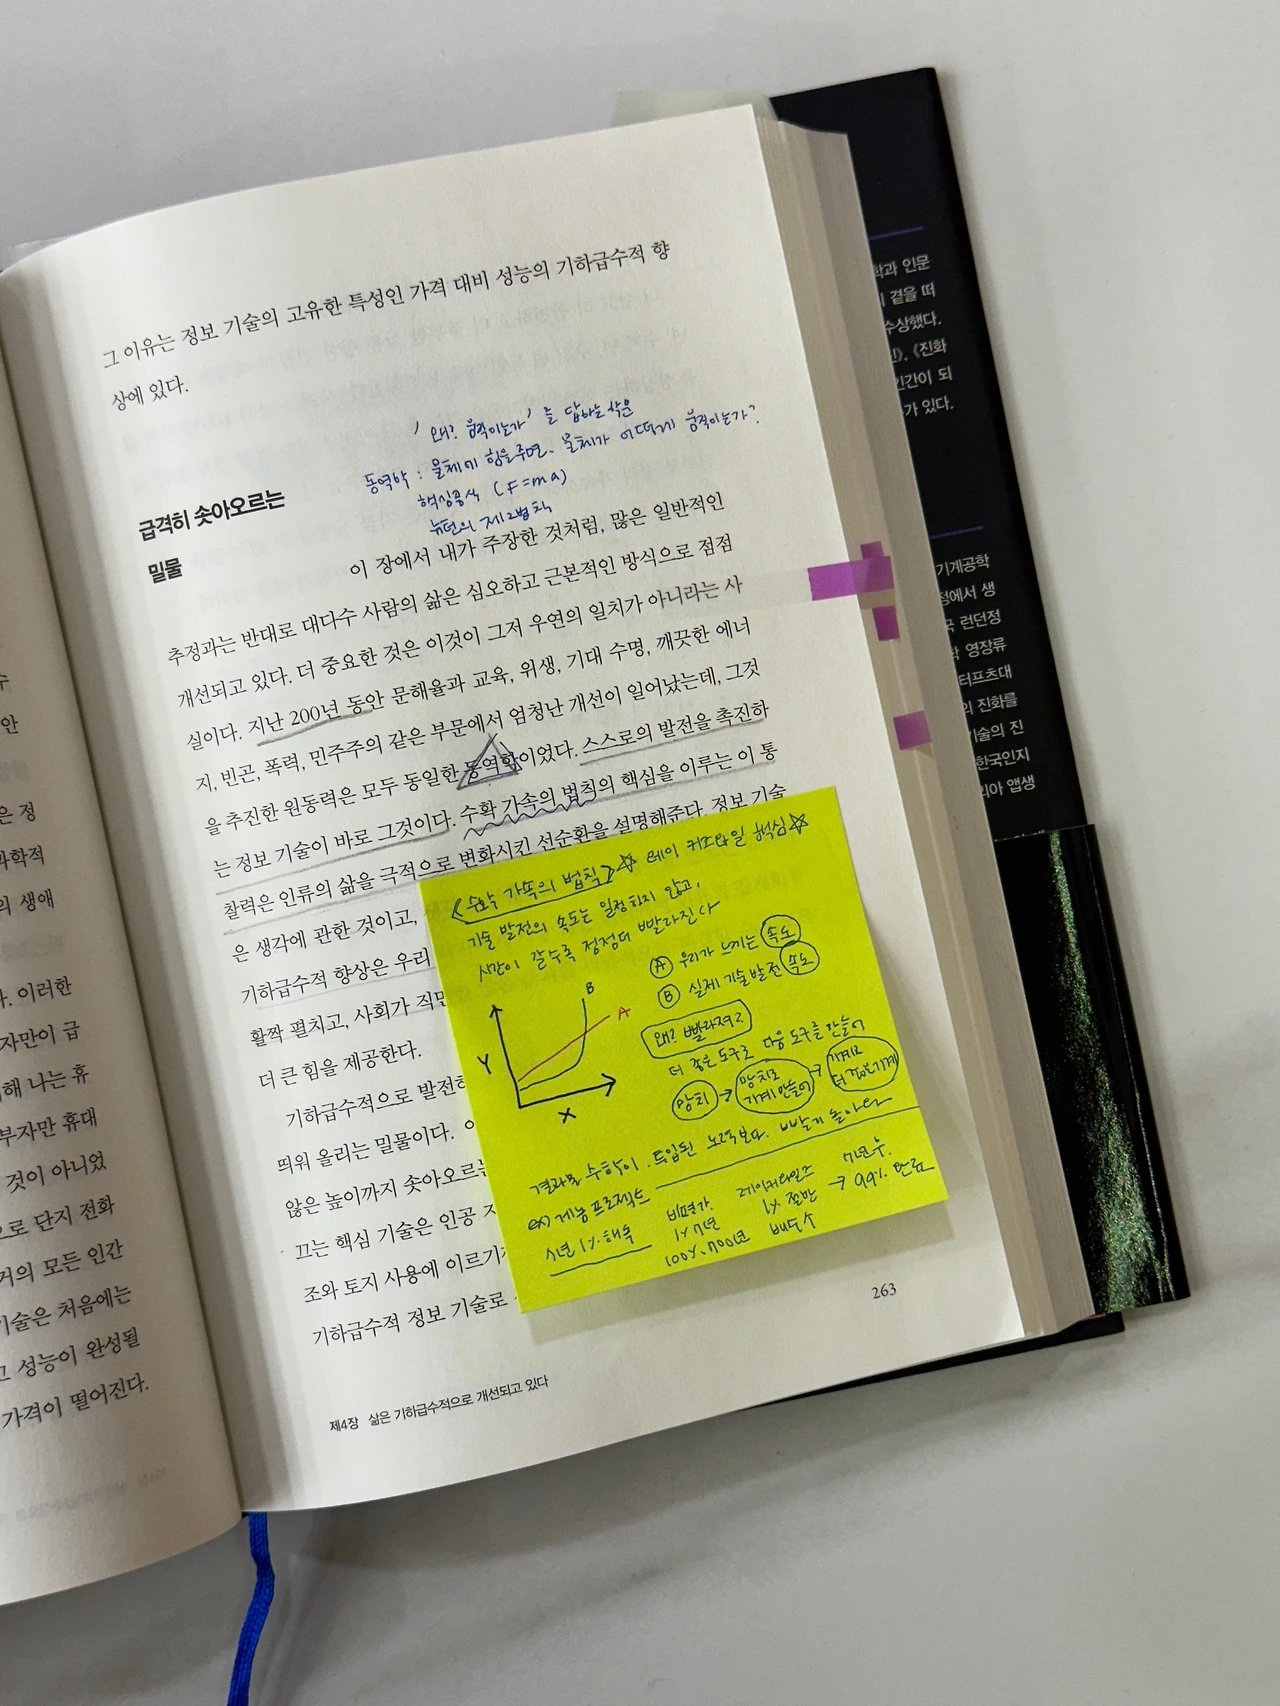 그 이유는 정보 기술의 고유한 특성인 가격 대비 성능의 기하급수적 향
상에 있다.
'왜? 움직이는가'를 답하는 학문
동역학 : 물체에 힘을 주면, 물체가 어떻게 움직이는가?
핵심공식 (F=ma)
뉴턴의 제2법칙
급격히 솟아오르는
밀물
이 장에서 내가 주장한 것처럼, 많은 일반적인
추정과는 반대로 대다수 사람의 삶은 심오하고 근본적인 방식으로 점점
개선되고 있다. 더 중요한 것은 이것이 그저 우연의 일치가 아니라는 사
실이다. 지난 200년 동안 문해율과 교육, 위생, 기대 수명, 깨끗한 에너
지, 빈곤, 폭력, 민주주의 같은 부문에서 엄청난 개선이 일어났는데, 그것
을 추진한 원동력은 모두 동일한 동역학이었다. 스스로의 발전을 촉진하
는 정보 기술이 바로 그것이다. 수확 가속의 법칙의 핵심을 이루는 이 통
찰력은 인류의 삶을 극적으로 변화시킨 선순환을 설명해준다. 정보 기술
은 생각에 관한 것이고,
기하급수적 향상은 우리
활짝 펼치고, 사회가 직면
더 큰 힘을 제공한다.
기하급수적으로 발전하
띄워 올리는 밀물이다.
않은 높이까지 솟아오르는
끄는 핵심 기술은 인공 지
조와 토지 사용에 이르기까
기하급수적 정보 기술로
<수확 가속의 법칙> ☆ 레이 커즈와일 핵심 ☆
기술 발전의 속도는 일정하지 않고,
시간이 갈수록 점점더 빨라진다
A 우리가 느끼는 속도
B 실제 기술발전 속도
B
A
Y
X
왜? 빨라져?
더 좋은 도구로 다음 도구를 만들어
망치 → 망치로 기계 만들어 → 기계로 더 좋은 기계
결과물 수확이, 투입된 노력보다. 빨리 돌아와
ex) 게놈 프로젝트
1% 해독
비평가
1% 7년
100%, 700년
1% 절반
배도수
→ 7년 후.
99% 완료
263
제4장 삶은 기하급수적으로 개선되고 있다
수
안
은 정
과학적
의 생애
다. 이러한
자만이 급
해 나는 휴
부자만 휴대
것이 아니었
으로 단지 전화
거의 모든 인간
기술은 처음에는
고 성능이 완성될
가격이 떨어진다.
학과 인문
곁을 떠
수상했다.
《진화
인간이 되
가 있다.
기계공학
정에서 생
국 런던정
학 영장류
터프츠대
의 진화를
기술의 진
한국인지
리아 앱생